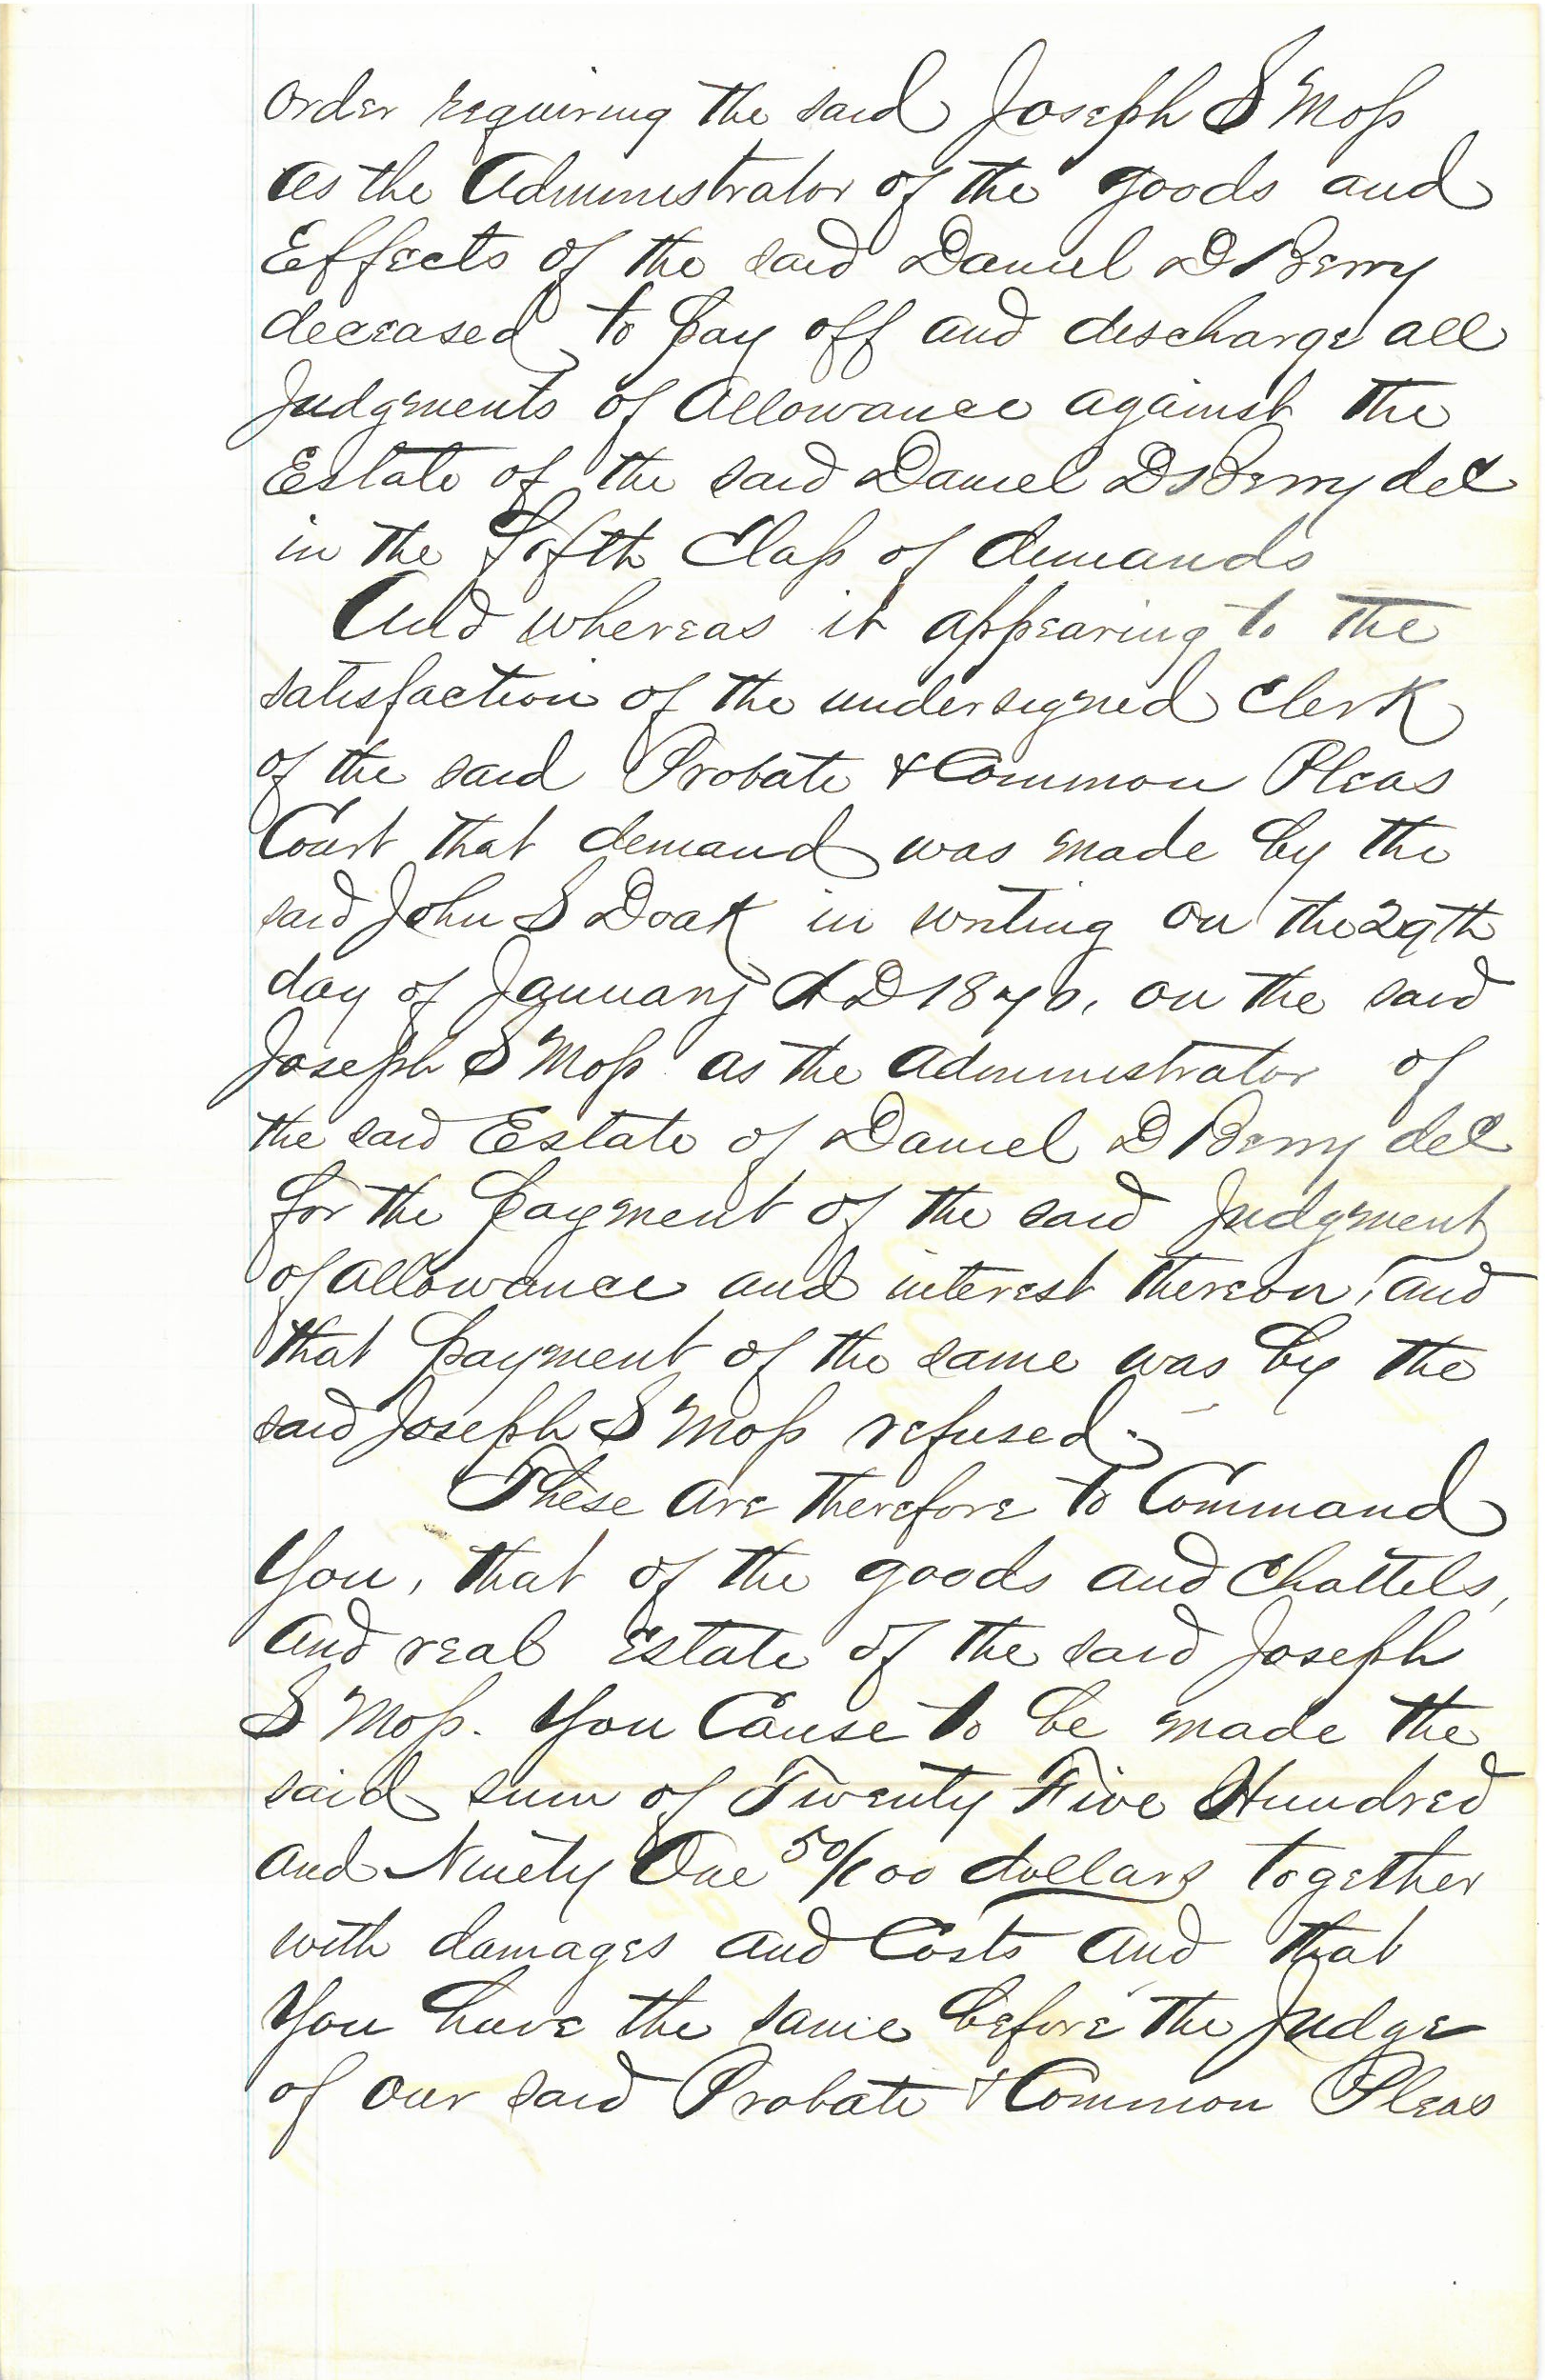 order requiring the said Joseph S Moss
as the Administrator of the goods and
Effects of the said Daniel D Berry
deceased to pay off and discharge all
Judgments of Allowance against the
Estate of the said Daniel D Berry decd
in the fifth Class of demands
And whereas it appearing to the
satisfaction of the undersigned Clerk
of the said Probate & Common Pleas
Court that demand was made by the
said John S Doak in writing on the 29th
day of January AD 1870, on the said
Joseph S Moss as the administrator of
the said Estate of Daniel D Berry decd
for the payment of the said Judgment
of allowance and interest thereon, and
that payment of the same was by the
said Joseph S Moss refused.
These are therefore to Command
You, that of the goods and Chattels,
and real Estate of the said Joseph
S Moss. You Cause to be made the
said sum of Twenty Five Hundred
and Ninety One 50/100 dollars together
with damages and Costs and that
You have the same before the Judge
of our said Probate & Common Pleas